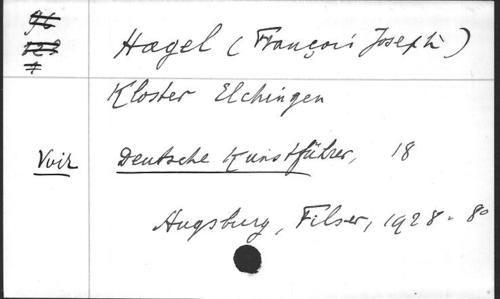 96
123
Hagel (François Joseph)
Kloster Elchingen
Voir Deutsche Kunstführer, 18
Augsburg, Filser, 1928. 8º